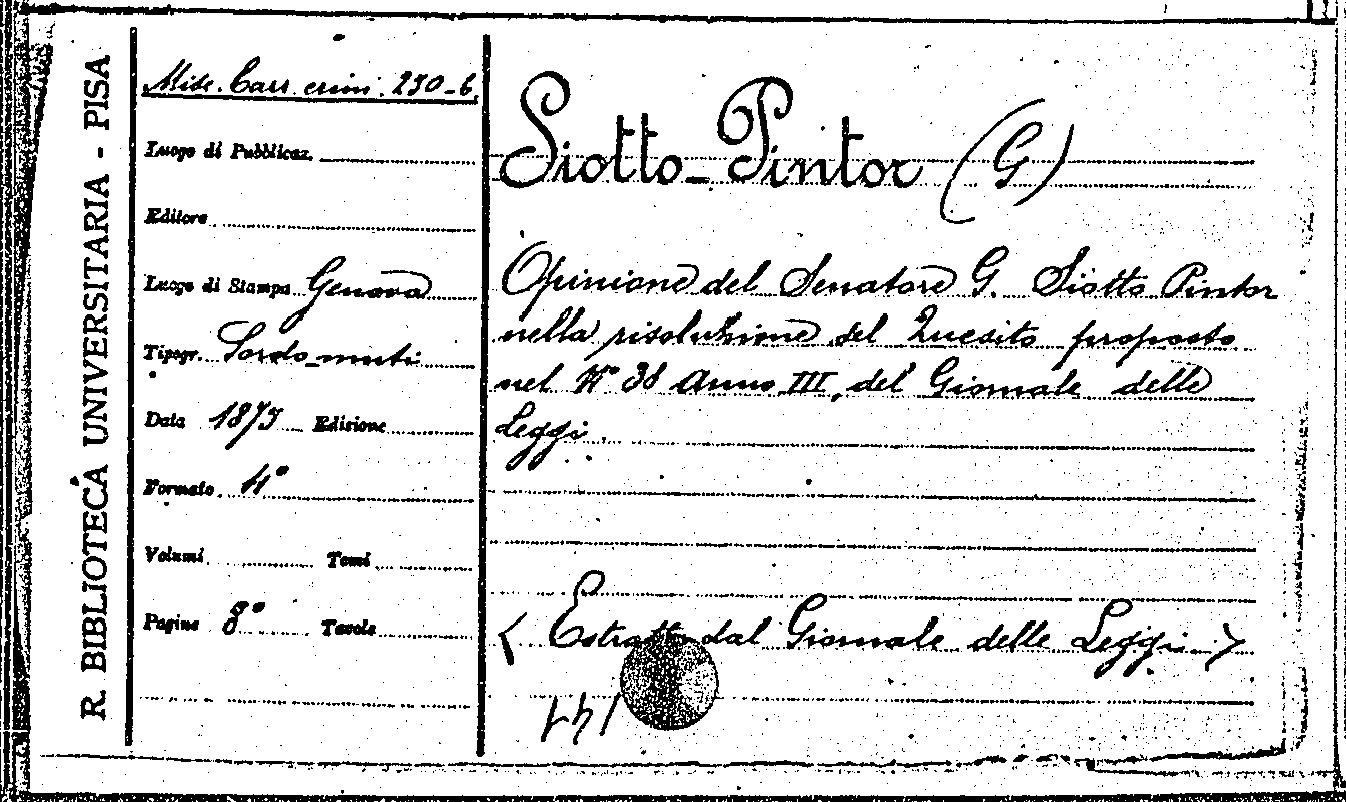 R. BIBLIOTECA UNIVERSITARIA - PISA
Misc. Carr. crim. 230-6
Luogo di Pubblicaz.
Editore
Luogo di Stampa Genova
Tipogr. Sordo-muti
Data 1875 Edizione
Formato 4°
Volumi Tomi
Pagine 8° Tavole
Siotto-Pintor (G)
Opinione del Senatore G. Siotto Pintor
nella risoluzione del Quesito proposto
nel N° 38 Anno III, del Giornale delle
Leggi.
( Estratto dal Giornale delle Leggi. )